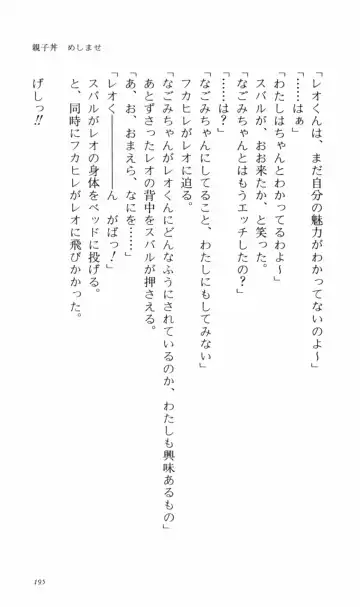 親子丼　めしませ
「レオくんは、まだ自分の魅力がわかってないのよ〜」
「……はぁ」
「わたしはちゃんとわかってるわよ〜」
スバルが、おお来たか、と笑った。
「なごみちゃんとはもうエッチしたの？」
「……は？」
「なごみちゃんにしてること、わたしにもしてみない」
フカヒレがレオに迫る。
「なごみちゃんがレオくんにどんなふうにされているのか、わたしも興味あるもの」
あとずさったレオの背中をスバルが押さえる。
「あ、お、おまえら、なにを……」
「レオく――――ん　がばっ！」
スバルがレオの身体をベッドに投げる。
と、同時にフカヒレがレオに飛びかかった。
げしっ!!
195